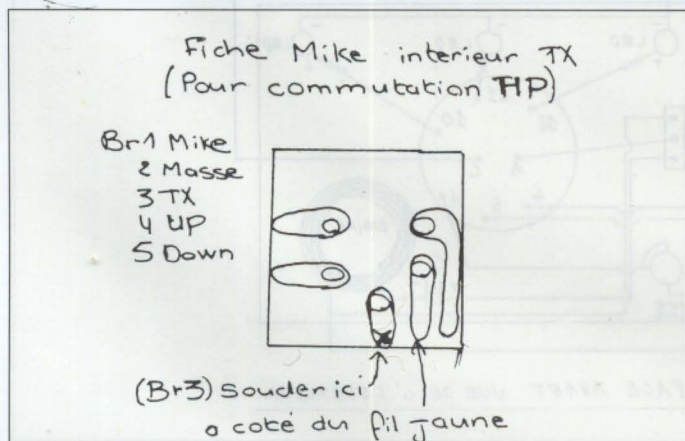 Fiche Mike interieur TX
(Pour commutation HP)
Br1 Mike
2 Masse
3 TX
4 UP
5 Down
(Br3) Souder ici
a coté du fil jaune
LED
LED
FACE AVANT VUE DE